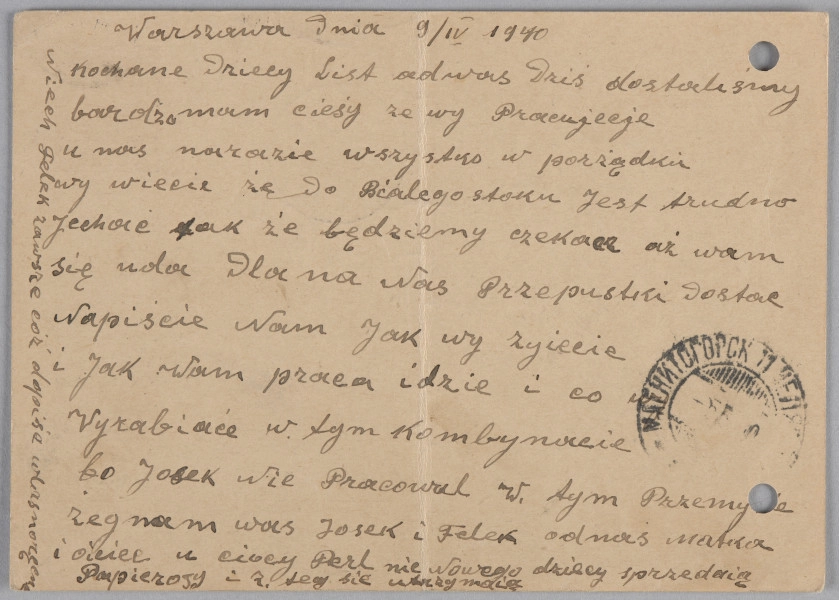 Warszawa Dnia 9/IV 1940
Kochane Dziecy List adwas Dziś dostaliśmy
bardzo mam cieśy że wy Pracujecje
u nas narazie wszystko w porządku
wy wiecie że do Białegostoku Jest trudno
Jechać tak że będziemy czekać aż wam
się uda Dla na Nas Przepustki Dostać
Napiście Nam Jak wy żyjecie
i Jak Wam praca idzie i co
Vyrabiaće w. tym Kombynacie
bo Josek nie Pracował W. tym Przemyśle
żegnam was Josek i Felek odnas Matka
i ojciec u ciocy Perl nie Nowego dziecy sprzedają
Papierosy i z. teg się utrzymają
Niech Felek zawsze coś dopisze własnoręcznie
МАГНИТОГОРСК 11 ЧЕЛЯБ